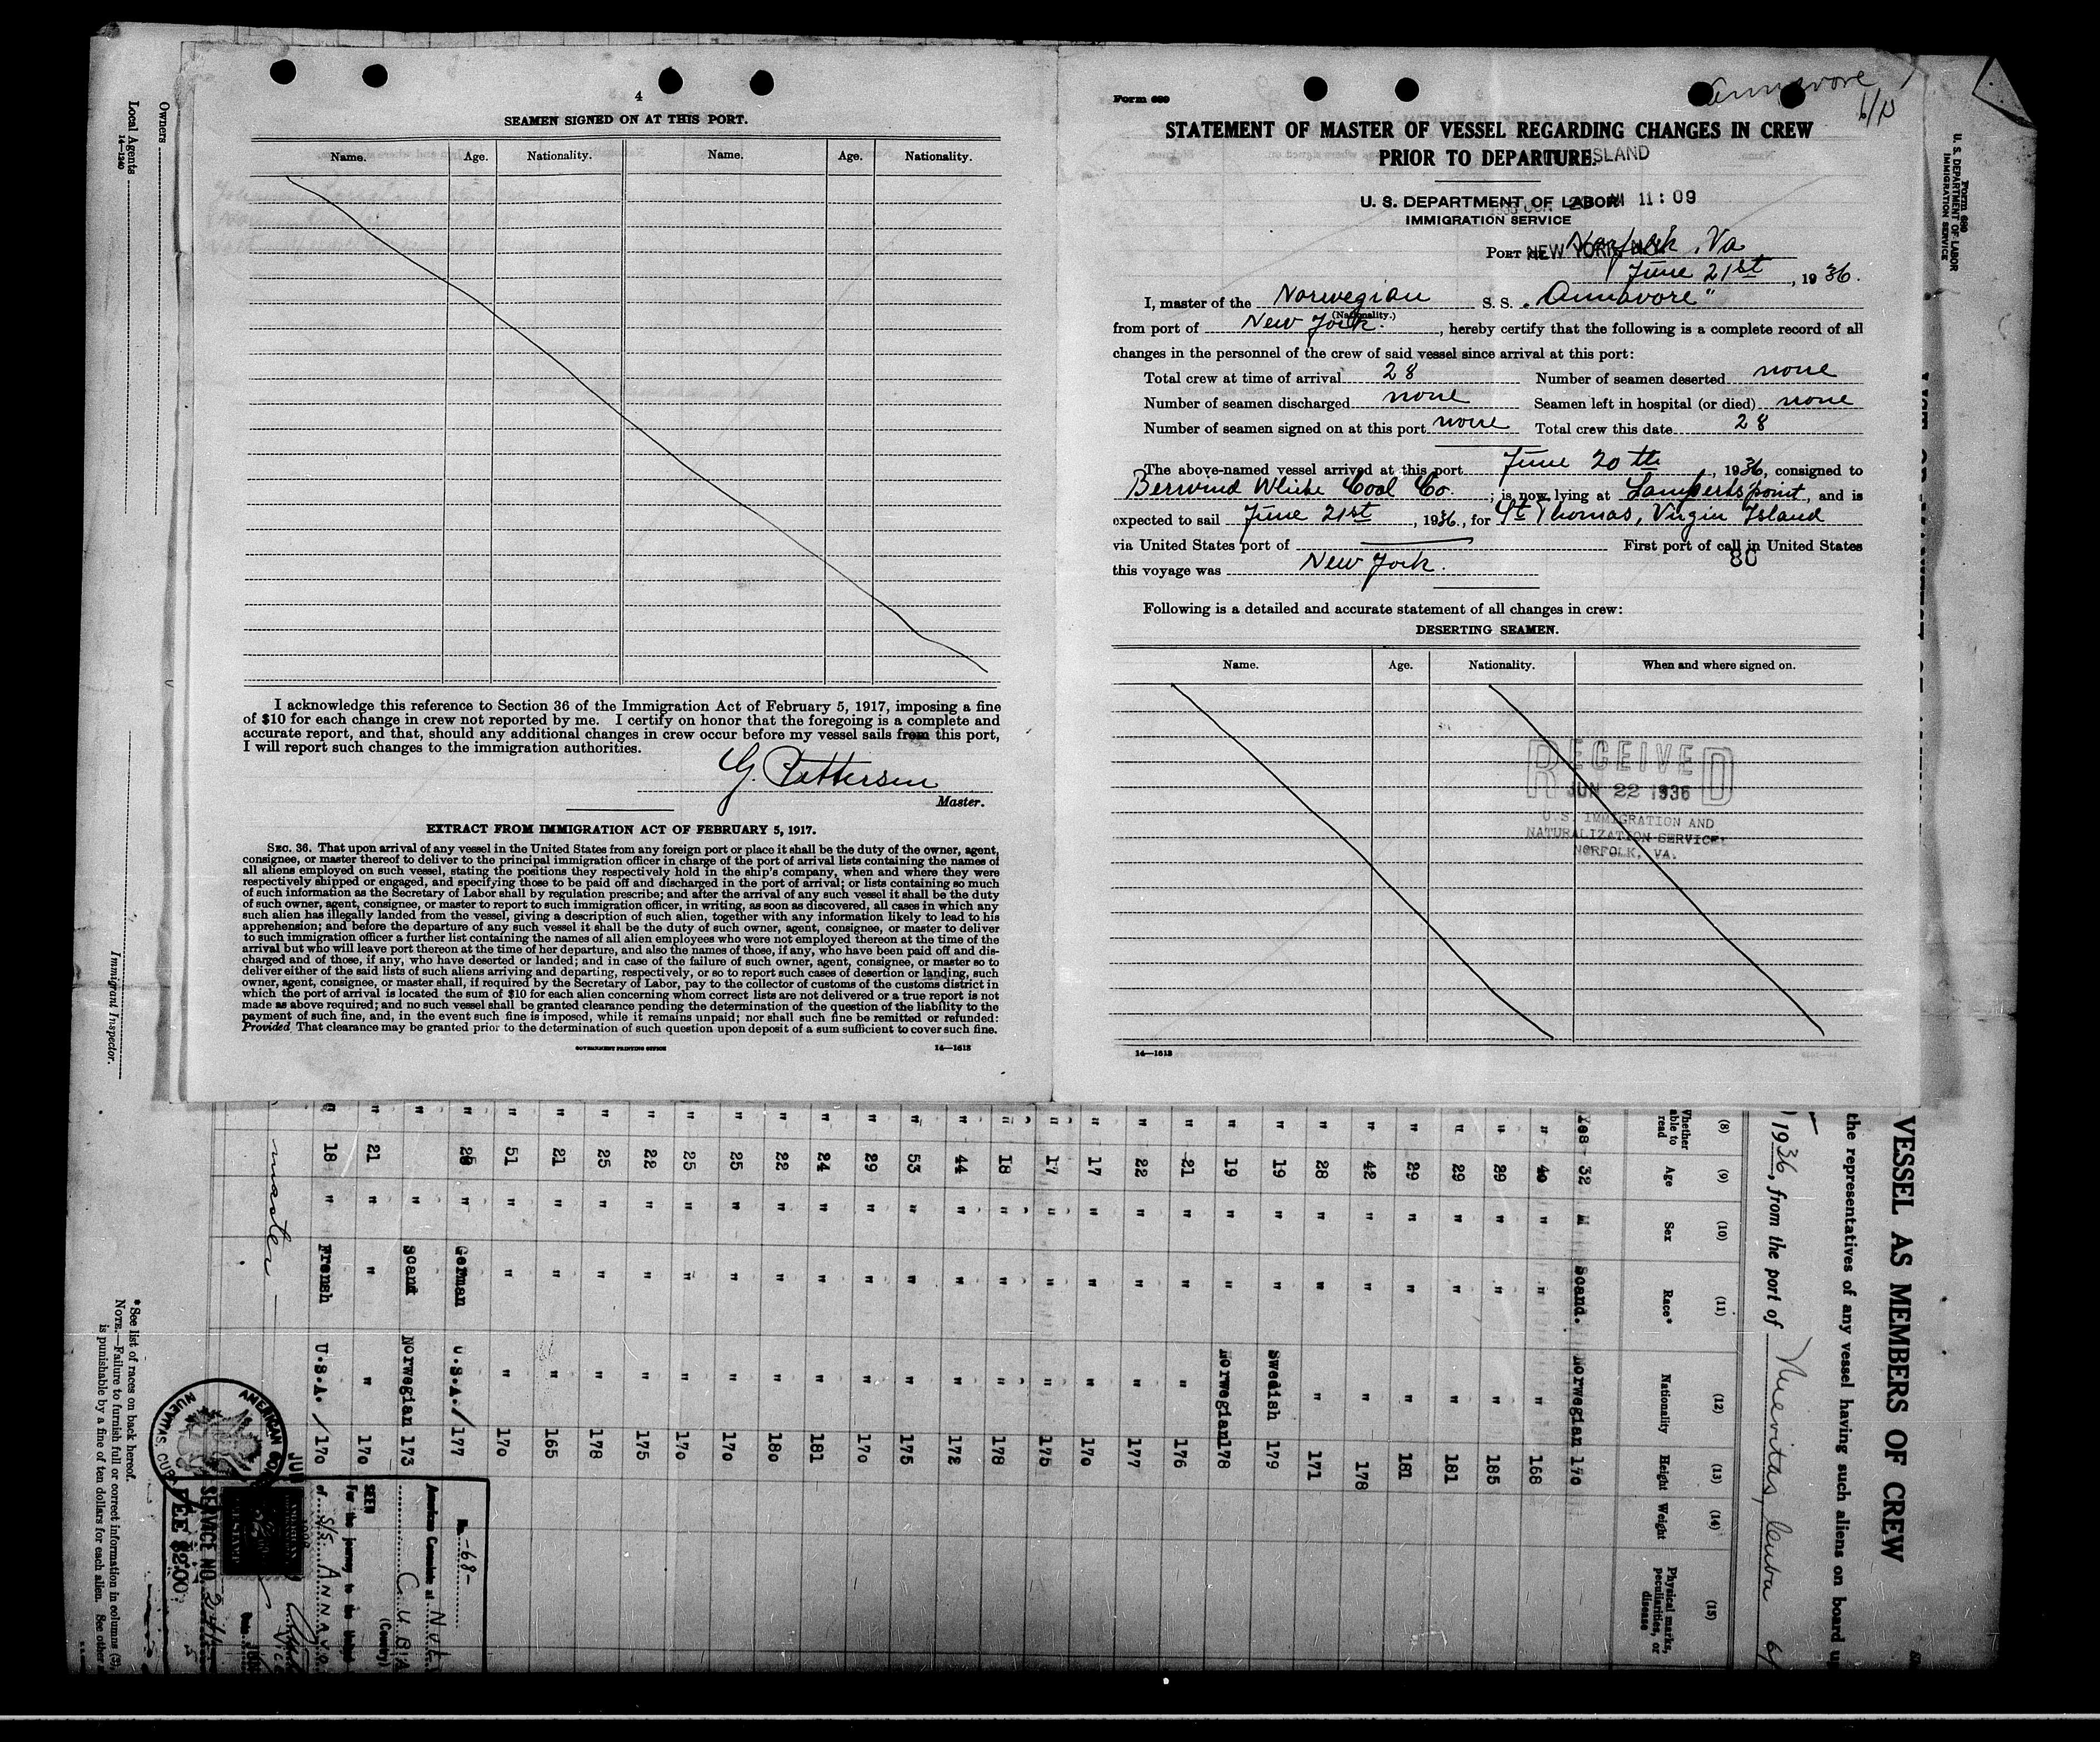 4
SEAMEN SIGNED ON AT THIS PORT.
Name. Age. Nationality. Name. Age. Nationality.
I acknowledge this reference to Section 36 of the Immigration Act of February 5, 1917, imposing a fine
of $10 for each change in crew not reported by me. I certify on honor that the foregoing is a complete and
accurate report, and that, should any additional changes in crew occur before my vessel sails from this port,
I will report such changes to the immigration authorities.
Master.
EXTRACT FROM IMMIGRATION ACT OF FEBRUARY 5, 1917.
SEC. 36. That upon arrival of any vessel in the United States from any foreign port or place it shall be the duty of the owner, agent,
consignee, or master thereof to deliver to the principal immigration officer in charge of the port of arrival lists containing the names of
all aliens employed on such vessel, stating the positions they respectively hold in the ship's company, when and where they were
respectively shipped or engaged, and specifying those to be paid off and discharged in the port of arrival; or lists containing so much
of such information as the Secretary of Labor shall by regulation prescribe; and after the arrival of any such vessel it shall be the duty
of such owner, agent, consignee, or master to report to such immigration officer, in writing, as soon as discovered, all cases in which any
such alien has illegally landed from the vessel, giving a description of such alien, together with any information likely to lead to his
apprehension; and before the departure of any such vessel it shall be the duty of such owner, agent, consignee, or master to deliver
to such immigration officer a further list containing the names of all alien employees who were not employed thereon at the time of the
arrival but who will leave port thereon at the time of her departure, and also the names of those, if any, who have been paid off and dis-
charged and of those, if any, who have deserted or landed; and in case of the failure of such owner, agent, consignee, or master so to
deliver either of the said lists of such aliens arriving and departing, respectively, or so to report such cases of desertion or landing, such
owner, agent, consignee, or master shall, if required by the Secretary of Labor, pay to the collector of customs of the customs district in
which the port of arrival is located the sum of $10 for each alien concerning whom correct lists are not delivered or a true report is not
made as above required; and no such vessel shall be granted clearance pending the determination of the question of the liability to the
payment of such fine, and, in the event such fine is imposed, while it remains unpaid; nor shall such fine be remitted or refunded:
Provided That clearance may be granted prior to the determination of such question upon deposit of a sum sufficient to cover such fine.
GOVERNMENT PRINTING OFFICE 14—1613
Form 689
Annavore
STATEMENT OF MASTER OF VESSEL REGARDING CHANGES IN CREW
PRIOR TO DEPARTURE.
ISLAND
U. S. DEPARTMENT OF LABOR
11:09
IMMIGRATION SERVICE
PORT OF NEW YORK Norfolk, Va
June 21st, 1936.
I, master of the Norwegian S. S. "Annavore"
(Nationality.)
from port of New York., hereby certify that the following is a complete record of all
changes in the personnel of the crew of said vessel since arrival at this port:
Total crew at time of arrival 28 Number of seamen deserted none
Number of seamen discharged none Seamen left in hospital (or died) none
Number of seamen signed on at this port none Total crew this date 28
The above-named vessel arrived at this port June 20th, 1936, consigned to
Berwind White Coal Co.; is now lying at Lambertspoint, and is
expected to sail June 21st, 1936, for St Thomas, Virgin Island
via United States port of First port of call in United States
this voyage was New York.
80
Following is a detailed and accurate statement of all changes in crew:
DESERTING SEAMEN.
Name. Age. Nationality. When and where signed on.
RECEIVED
JUN 22 1936
U.S. IMMIGRATION AND
NATURALIZATION SERVICE
NORFOLK, VA.
14—1613
Owners
Local Agents
14—1240
Immigrant Inspector.
Form 689
U. S. DEPARTMENT OF LABOR
IMMIGRATION SERVICE
VESSEL AS MEMBERS OF CREW
the representatives of any vessel having such aliens on board
1936, from the port of Nuevitas, Cuba
(8) (9) (10) (11) (12) (13) (14) (15)
Whether able to read Age Sex Race* Nationality Height Weight Physical marks, peculiarities, or disease
Yes 32 M Scand. Norwegian 170
" 40 " " " 168
" 29 " " " 185
" 29 " " " 181
" 29 " " " 181
" 42 " " " 178
" 28 " " " 171
" 19 " " Swedish 179
" 19 " " Norwegian 178
" 21 " " " 176
" 22 " " " 177
" 17 " " " 170
" 17 " " " 175
" 18 " " " 178
" 44 " " " 172
" 53 " " " 175
" 29 " " " 170
" 24 " " " 181
" 22 " " " 180
" 25 " " " 170
" 25 " " " 170
" 22 " " " 175
" 25 " " " 178
" 21 " " " 165
" 51 " " " 170
" " German U.S.A. / 177
" " " Scand Norwegian 173
" 21 " " " 170
" 18 " French U.S.A. / 170
master
No. -68-
American Consulate at
CUBA
(County)
SEEN
For the journey to the United
of S/S ANNAVO
AMERICAN
NUEVITAS, CUBA
SERVICE NO.
FEE $2.00
*See list of races on back hereof.
NOTE.—Failure to furnish full or correct information in columns (3),
is punishable by a fine of ten dollars for each alien. See other